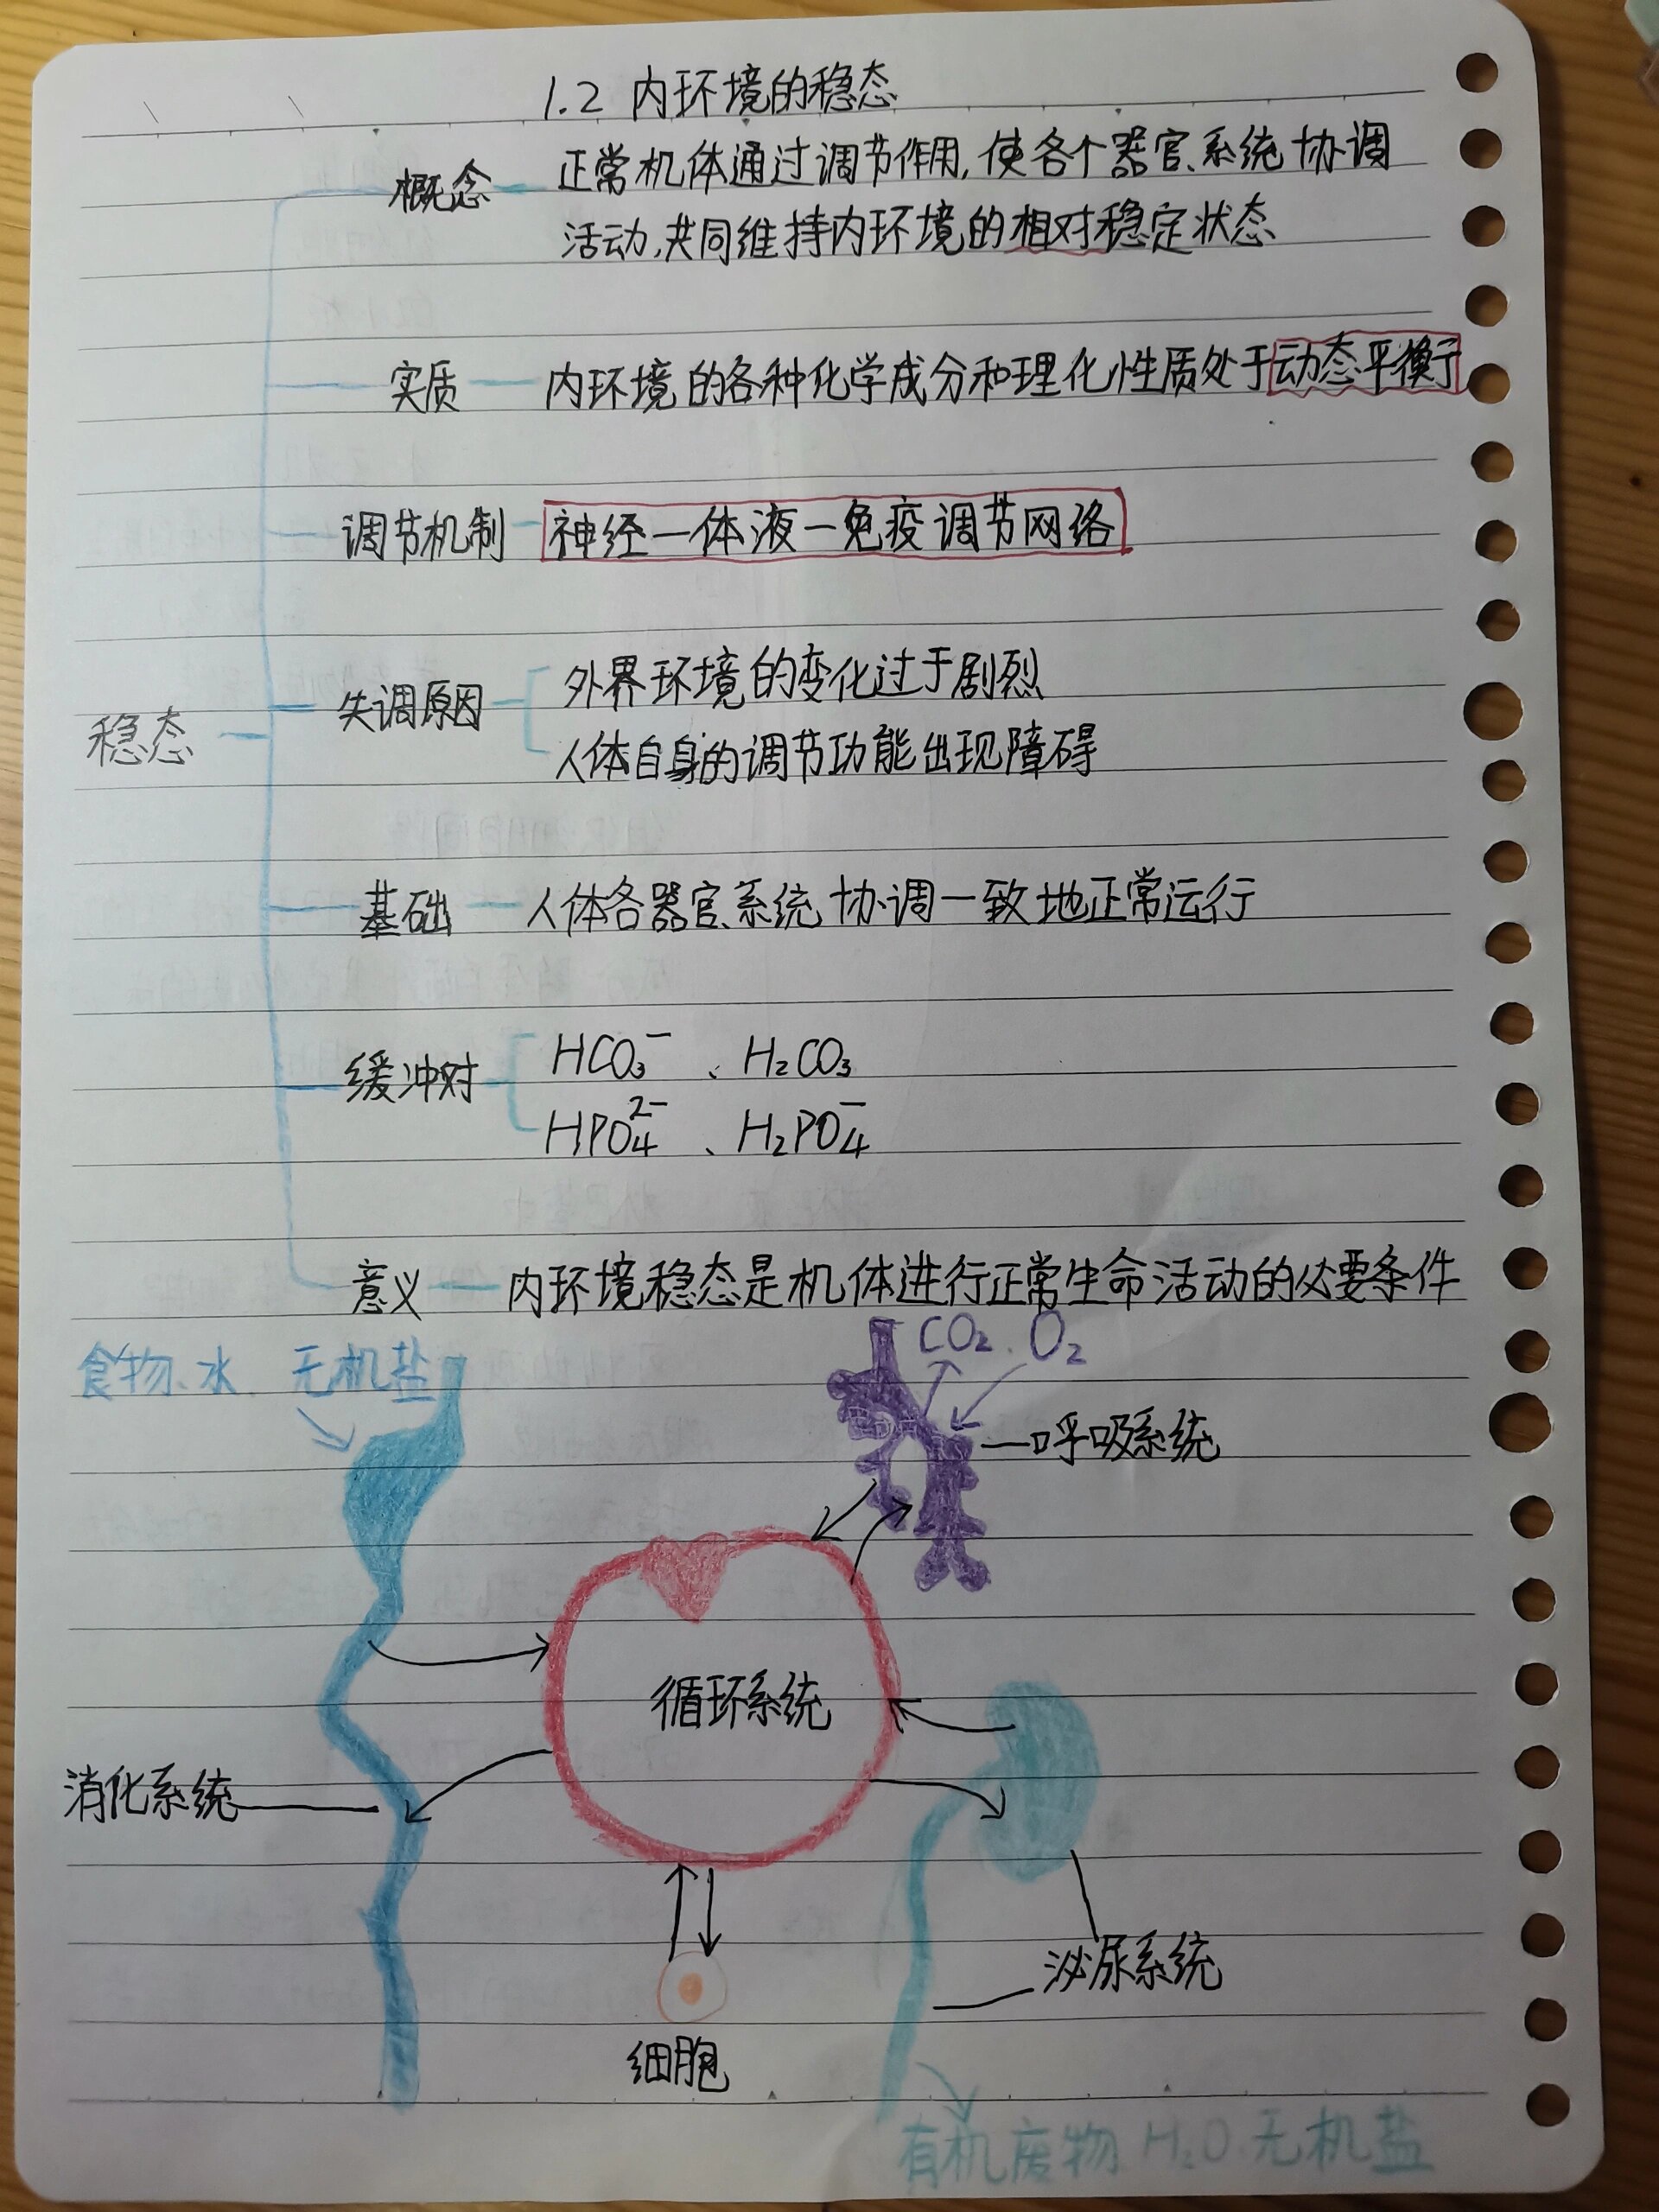 1.2 内环境的稳态
概念 正常机体通过调节作用,使各个器官、系统协调
活动,共同维持内环境的相对稳定状态
实质 — 内环境的各种化学成分和理化性质处于动态平衡
调节机制 - 神经—体液—免疫调节网络
外界环境的变化过于剧烈
失调原因
稳态
人体自身的调节功能出现障碍
基础 — 人体各器官、系统协调一致地正常运行
HCO₃⁻、H₂CO₃
缓冲对
HPO₄²⁻、H₂PO₄⁻
意义 — 内环境稳态是机体进行正常生命活动的必要条件
食物、水、无机盐
CO₂、O₂
呼吸系统
循环系统
消化系统
泌尿系统
细胞
有机废物 H₂O、无机盐